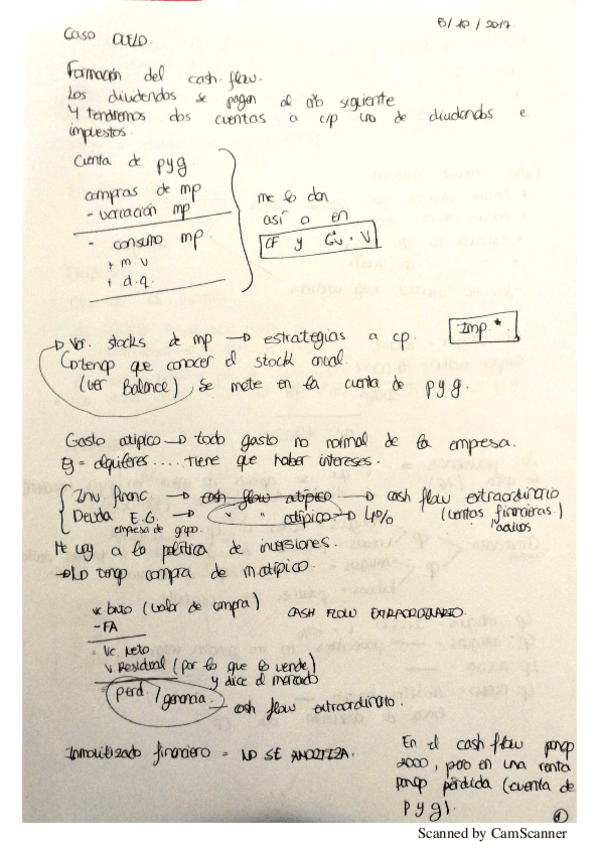 5/10/2017
Caso DUELO.
Formación del cash-flow.
Los dividendos se pagan al año siguiente
Y tendremos dos cuentas a c/p uno de dividendos e
impuestos.
Cuenta de pyg
compras de mp
- variación mp
- consumo mp
+ m.v
+ d.q.
me lo dan
así o en
CF y V
Ver. stocks de mp → estrategias a cp.
Imp *
tengo que conocer el stock anual.
(ver Balance), se mete en la cuenta de pyg.
Gasto atípico → todo gasto no normal de la empresa.
Eg = alquileres .... tiene que haber intereses.
Inv financ → cash flow atípico → cash flow extraordinario
Deuda E.G. → " " atípico → 4% (ventas financieras)
empresa de grupo. activos
Me voy a la política de inversiones.
→ Lo tengo compra de m.atípico.
Vc bruto (valor de compra) CASH FLOW EXTRAORDINARIO.
- FA
= Vc. Neto
V Residual (por lo que lo vende)
y dice el mercado
= perd. / ganancia. cash flow extraordinario.
Inmovilizado financiero = NO SE AMORTIZA.
En el cash flow pongo
2000, pero en una renta
pongo pérdida (cuenta de
pyg).
1
Scanned by CamScanner